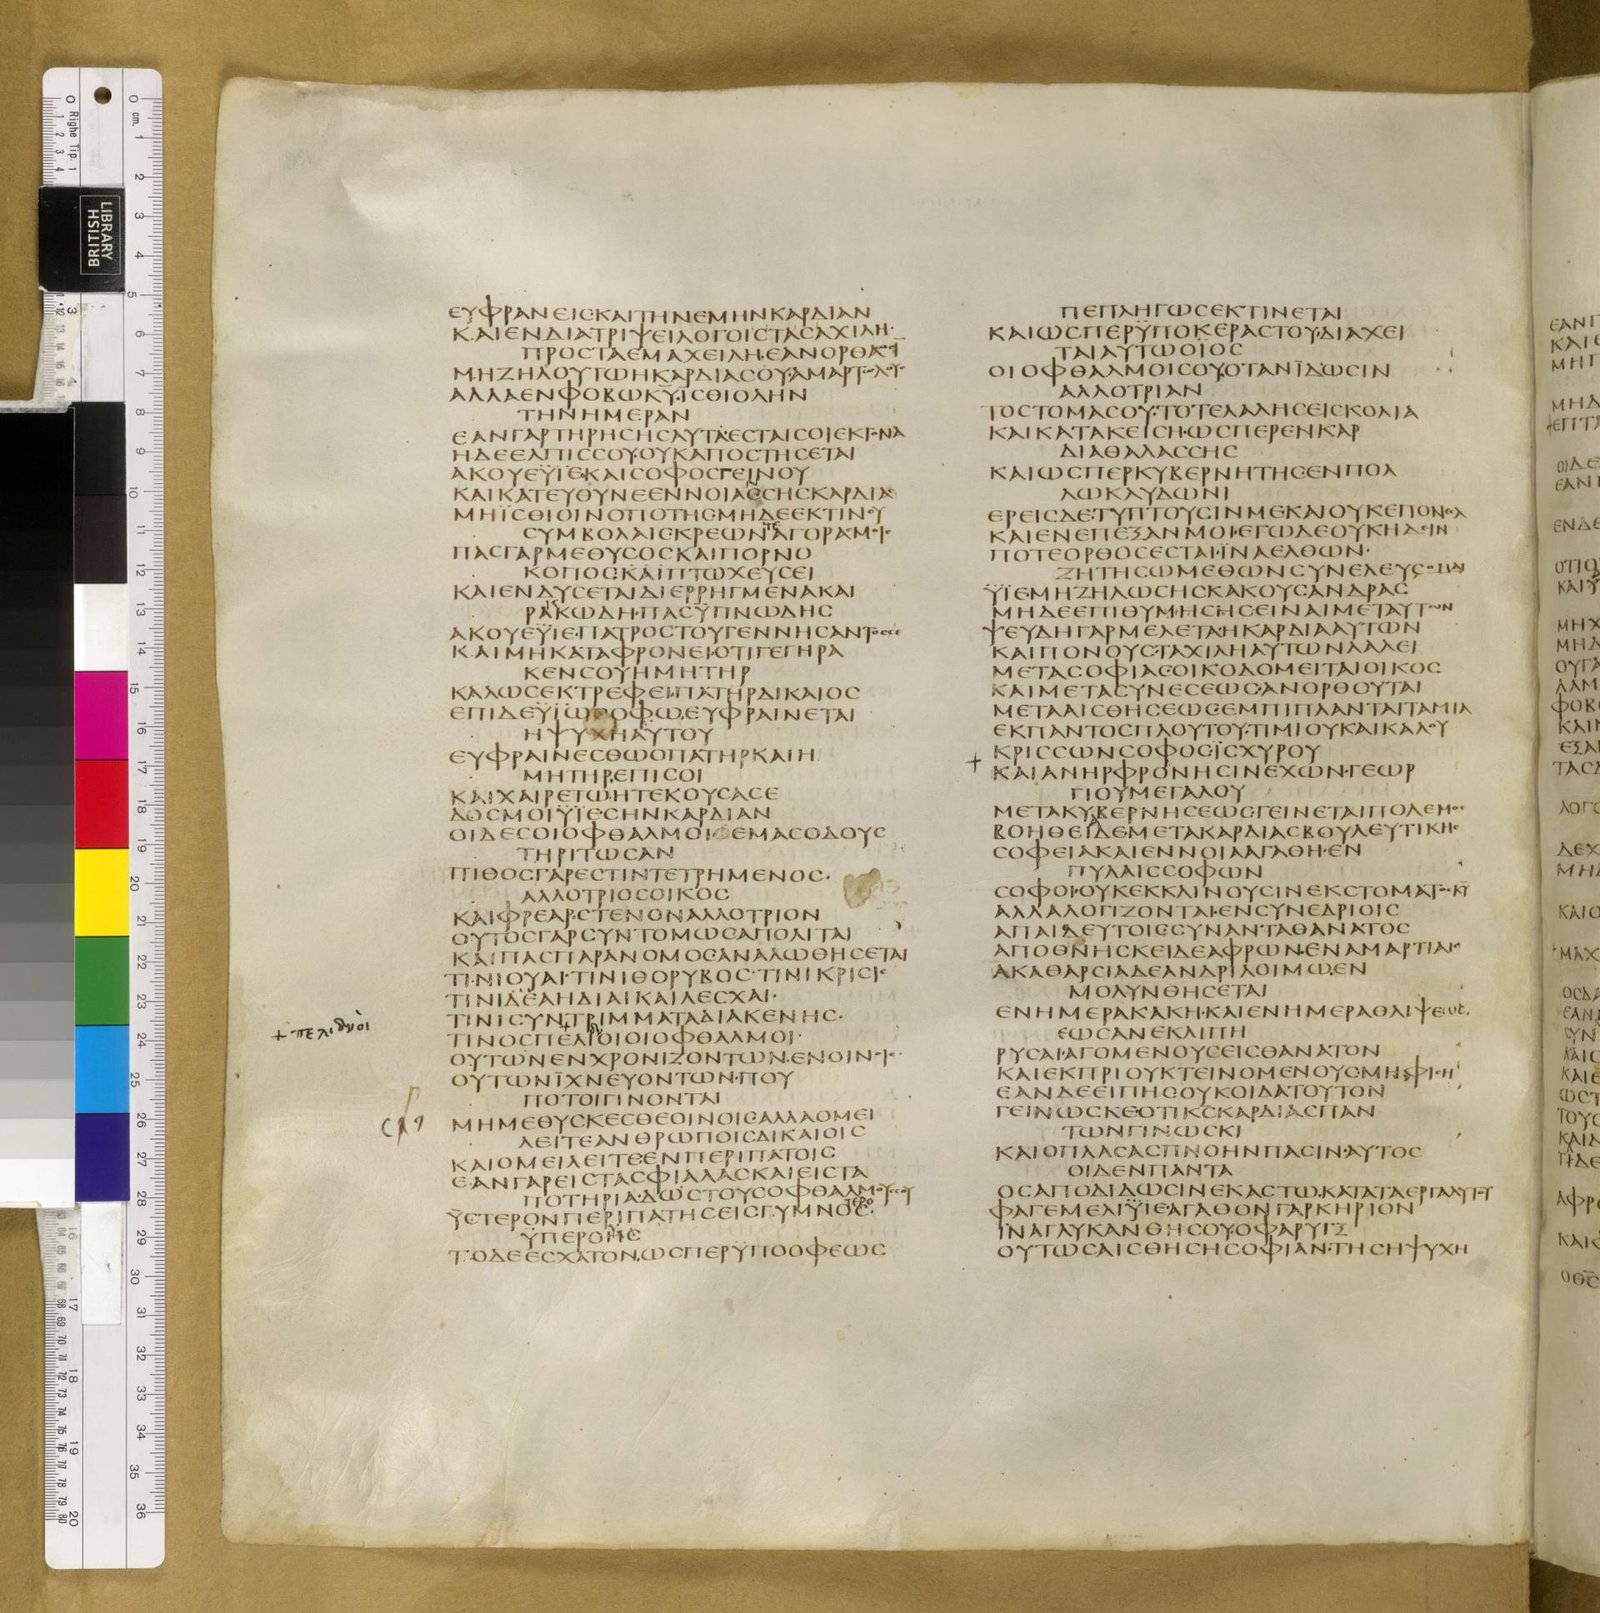 ΕΥΦΡΑΝΕΙϹΚΑΙΤΗΝΕΜΗΝΚΑΡΔΙΑΝ
ΚΑΙΕΝΔΙΑΤΡΙΨΕΙΛΟΓΟΙϹΤΑϹΑΧΙΛΗ
ΠΡΟϹΤΑΕΜΑΧΕΙΛΗΕΑΝΟΡΘΑ
ΜΗΖΗΛΟΥΤΩΗΚΑΡΔΙΑϹΟΥΑΜΑΡΤΩΛΟΥϹ
ΑΛΛΑΕΝΦΟΒΩΚΥΙϹΘΙΟΛΗΝ
ΤΗΝΗΜΕΡΑΝ
ΕΑΝΓΑΡΤΗΡΗϹΗϹΑΥΤΑΕϹΤΑΙϹΟΙΕΚΓΟΝΑ
ΗΔΕΕΛΠΙϹϹΟΥΟΥΚΑΠΟϹΤΗϹΕΤΑΙ
ΑΚΟΥΕΫΙΕΚΑΙϹΟΦΟϹΓΕΙΝΟΥ
ΚΑΙΚΑΤΕΥΘΥΝΕΕΝΝΟΙΑϹϹΗϹΚΑΡΔΙΑ
ΜΗΪϹΘΙΟΙΝΟΠΟΤΗϹΜΗΔΕΕΚΤΙΝΟΥ
ϹΥΜΒΟΛΑΙϹΚΡΕΩΝΤΕΑΓΟΡΑϹΜΟΙϹ
ΠΑϹΓΑΡΜΕΘΥϹΟϹΚΑΙΠΟΡΝΟ
ΚΟΠΟϹΚΑΙΠΤΩΧΕΥϹΕΙ
ΚΑΙΕΝΔΥϹΕΤΑΙΔΙΕΡΡΗΓΜΕΝΑΚΑΙ
ΡΑΚΩΔΗΠΑϹΫΠΝΩΔΗϹ
ΑΚΟΥΕΫΙΕΠΑΤΡΟϹΤΟΥΓΕΝΝΗϹΑΝΤΟϹϹΕ
ΚΑΙΜΗΚΑΤΑΦΡΟΝΕΙΟΤΙΓΕΓΗΡΑ
ΚΕΝϹΟΥΗΜΗΤΗΡ
ΚΑΛΩϹΕΚΤΡΕΦΕΙΠΑΤΗΡΔΙΚΑΙΟϹ
ΕΠΙΔΕΫΙΩϹΟΦΩΕΥΦΡΑΙΝΕΤΑΙ
ΗΨΥΧΗΑΥΤΟΥ
ΕΥΦΡΑΙΝΕϹΘΩΟΠΑΤΗΡΚΑΙΗ
ΜΗΤΗΡΕΠΙϹΟΙ
ΚΑΙΧΑΙΡΕΤΩΗΤΕΚΟΥϹΑϹΕ
ΔΟϹΜΟΙΫΙΕϹΗΝΚΑΡΔΙΑΝ
ΟΙΔΕϹΟΙΟΦΘΑΛΜΟΙΕΜΑϹΟΔΟΥϹ
ΤΗΡΙΤΩϹΑΝ
ΠΙΘΟϹΓΑΡΕϹΤΙΝΤΕΤΡΗΜΕΝΟϹ
ΑΛΛΟΤΡΙΟϹΟΙΚΟϹ
ΚΑΙΦΡΕΑΡϹΤΕΝΟΝΑΛΛΟΤΡΙΟΝ
ΟΥΤΟϹΓΑΡϹΥΝΤΟΜΩϹΑΠΟΛΙΤΑΙ
ΚΑΙΠΑϹΠΑΡΑΝΟΜΟϹΑΝΑΛΩΘΗϹΕΤΑΙ
ΤΙΝΙΟΥΑΙΤΙΝΙΘΟΡΥΒΟϹΤΙΝΙΚΡΙϹΙϹ
ΤΙΝΙΔΕΑΗΔΙΑΙΚΑΙΛΕϹΧΑΙ
ΤΙΝΙϹΥΝΤΡΙΜΜΑΤΑΔΙΑΚΕΝΗϹ
+ πελιδνοι
ΤΙΝΟϹΠΕΛΙΟΙΟΙΟΦΘΑΛΜΟΙ
ΟΥΤΩΝΕΝΧΡΟΝΙΖΟΝΤΩΝΕΝΟΙΝΟΙϹ
ΟΥΤΩΝΪΧΝΕΥΟΝΤΩΝΠΟΥ
ΠΟΤΟΙΓΙΝΟΝΤΑΙ
ΜΗΜΕΘΥϹΚΕϹΘΕΟΙΝΟΙϹΑΛΛΑΟΜΕΙ
ΛΕΙΤΕΑΝΘΡΩΠΟΙϹΔΙΚΑΙΟΙϹ
ΚΑΙΟΜΕΙΛΕΙΤΕΕΝΠΕΡΙΠΑΤΟΙϹ
ΕΑΝΓΑΡΕΙϹΤΑϹΦΙΑΛΑϹΚΑΙΕΙϹΤΑ
ΠΟΤΗΡΙΑΔΩϹΤΟΥϹΟΦΘΑΛΜΟΥϹϹΟΥ
ΫϹΤΕΡΟΝΠΕΡΙΠΑΤΗϹΕΙϹΓΥΜΝΟΤΕΡΟϹ
ΫΠΕΡΟΥ
ΤΟΔΕΕϹΧΑΤΟΝΩϹΠΕΡΫΠΟΟΦΕΩϹ
ΠΕΠΛΗΓΩϹΕΚΤΙΝΕΤΑΙ
ΚΑΙΩϹΠΕΡΫΠΟΚΕΡΑϹΤΟΥΔΙΑΧΕΙ
ΤΑΙΑΥΤΩΟΪΟϹ
ΟΙΟΦΘΑΛΜΟΙϹΟΥΟΤΑΝΪΔΩϹΙΝ
ΑΛΛΟΤΡΙΑΝ
ΤΟϹΤΟΜΑϹΟΥΤΟΤΕΛΑΛΗϹΕΙϹΚΟΛΙΑ
ΚΑΙΚΑΤΑΚΕΙϹΗΩϹΠΕΡΕΝΚΑΡ
ΔΙΑΘΑΛΑϹϹΗϹ
ΚΑΙΩϹΠΕΡΚΥΒΕΡΝΗΤΗϹΕΝΠΟΛ
ΛΩΚΛΥΔΩΝΙ
ΕΡΕΙϹΔΕΤΥΠΤΟΥϹΙΝΜΕΚΑΙΟΥΚΕΠΟΝΕϹΑ
ΚΑΙΕΝΕΠΕΞΑΝΜΟΙΕΓΩΔΕΟΥΚΗΔΕΙΝ
ΠΟΤΕΟΡΘΟϹΕϹΤΑΙΪΝΑΕΛΘΩΝ
ΖΗΤΗϹΩΜΕΘΩΝϹΥΝΕΛΕΥϹΟΜΑΙ
ΫΪΕΜΗΖΗΛΩϹΗϹΚΑΚΟΥϹΑΝΔΡΑϹ
ΜΗΔΕΕΠΙΘΥΜΗϹΗϹΕΙΝΑΙΜΕΤΑΥΤΩΝ
ΨΕΥΔΗΓΑΡΜΕΛΕΤΑΗΚΑΡΔΙΑΑΥΤΩΝ
ΚΑΙΠΟΝΟΥϹΤΑΧΙΛΗΑΥΤΩΝΛΑΛΕΙ
ΜΕΤΑϹΟΦΙΑϹΟΙΚΟΔΟΜΕΙΤΑΙΟΙΚΟϹ
ΚΑΙΜΕΤΑϹΥΝΕϹΕΩϹΑΝΟΡΘΟΥΤΑΙ
ΜΕΤΑΑΙϹΘΗϹΕΩϹΕΜΠΙΠΛΑΝΤΑΙΤΑΜΙΑ
ΕΚΠΑΝΤΟϹΠΛΟΥΤΟΥΤΙΜΙΟΥΚΑΙΚΑΛΟΥ
ΚΡΙϹϹΩΝϹΟΦΟϹΪϹΧΥΡΟΥ
ΚΑΙΑΝΗΡΦΡΟΝΗϹΙΝΕΧΩΝΓΕΩΡ
ΓΙΟΥΜΕΓΑΛΟΥ
ΜΕΤΑΚΥΒΕΡΝΗϹΕΩϹΓΕΙΝΕΤΑΙΠΟΛΕΜΟϹ
ΒΟΗΘΕΙΔΕΜΕΤΑΚΑΡΔΙΑϹΒΟΥΛΕΥΤΙΚΗϹ
ϹΟΦΕΙΑΚΑΙΕΝΝΟΙΑΑΓΑΘΗΕΝ
ΠΥΛΑΙϹϹΟΦΩΝ
ϹΟΦΟΙΟΥΚΕΚΚΛΙΝΟΥϹΙΝΕΚϹΤΟΜΑΤΟϹΚΥ
ΑΛΛΑΛΟΓΙΖΟΝΤΑΙΕΝϹΥΝΕΔΡΙΟΙϹ
ΑΠΑΙΔΕΥΤΟΙϹϹΥΝΑΝΤΑΘΑΝΑΤΟϹ
ΑΠΟΘΝΗϹΚΕΙΔΕΑΦΡΩΝΕΝΑΜΑΡΤΙΑΙϹ
ΑΚΑΘΑΡϹΙΑΔΕΑΝΔΡΙΛΟΙΜΩΕΝ
ΜΟΛΥΝΘΗϹΕΤΑΙ
ΕΝΗΜΕΡΑΚΑΚΗΚΑΙΕΝΗΜΕΡΑΘΛΙΨΕΩϹ
ΕΩϹΑΝΕΚΛΙΠΗ
ΡΥϹΑΙΑΓΟΜΕΝΟΥϹΕΙϹΘΑΝΑΤΟΝ
ΚΑΙΕΚΠΡΙΟΥΚΤΕΙΝΟΜΕΝΟΥϹΜΗΦΙϹΗ
ΕΑΝΔΕΕΙΠΗϹΟΥΚΟΙΔΑΤΟΥΤΟΝ
ΓΕΙΝΩϹΚΕΟΤΙΚϹΚΑΡΔΙΑϹΠΑΝ
ΤΩΝΓΙΝΩϹΚΙ
ΚΑΙΟΠΛΑϹΑϹΠΝΟΗΝΠΑϹΙΝΑΥΤΟϹ
ΟΙΔΕΝΠΑΝΤΑ
ΟϹΑΠΟΔΙΔΩϹΙΝΕΚΑϹΤΩΚΑΤΑΤΑΕΡΓΑΑΥΤΟΥ
ΦΑΓΕΜΕΛΙΫΙΕΑΓΑΘΟΝΓΑΡΚΗΡΙΟΝ
ΙΝΑΓΛΥΚΑΝΘΗϹΟΥΟΦΑΡΥΓΞ
ΟΥΤΩϹΑΙϹΘΗϹΗϹΟΦΙΑΝΤΗϹΗΨΥΧΗ
BRITISH
LIBRARY